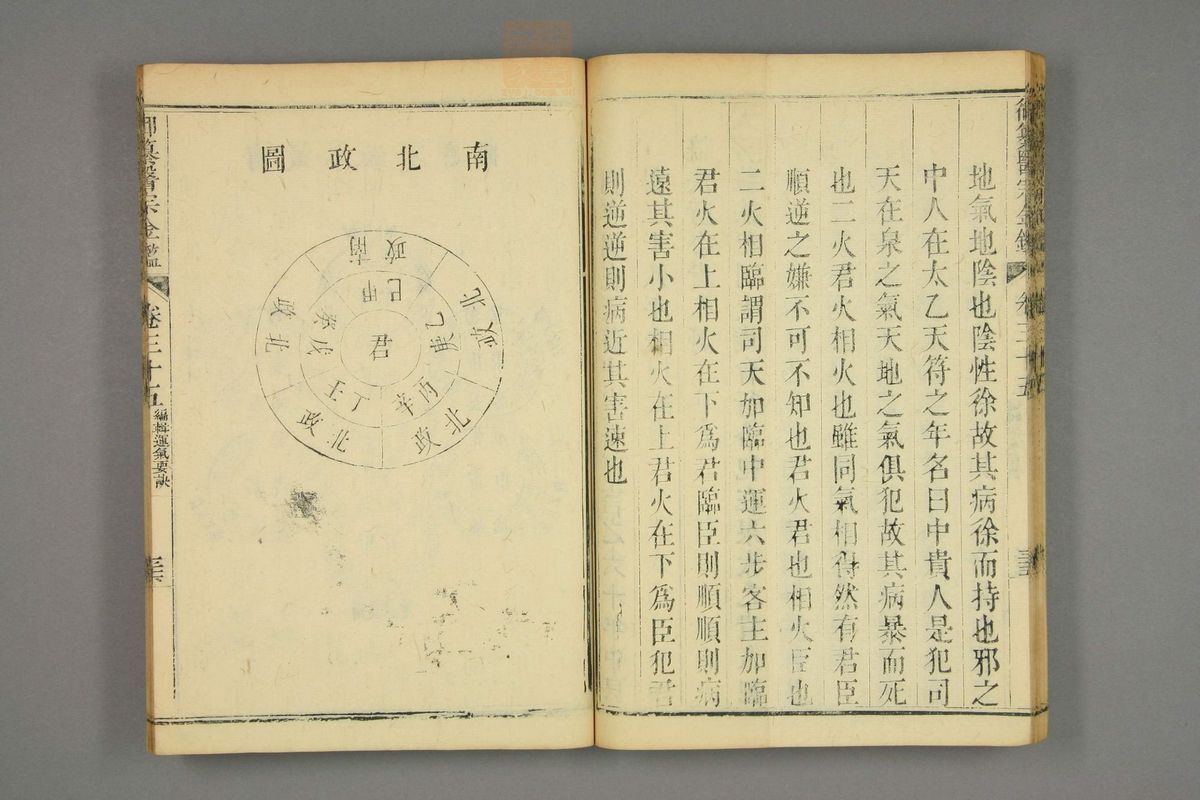 地氣地陰也陰性徐故其病徐而持也邪之
中人在太乙天符之年名曰中貴人是犯司
天在泉之氣天地之氣俱犯故其病暴而死
也二火君火相火也雖同氣相得然有君臣
順逆之嫌不可不知也君火君也相火臣也
二火相臨謂司天加臨中運六步客主加臨
君火在上相火在下爲君臨臣則順順則病
遠其害小也相火在上君火在下爲臣犯君
則逆逆則病近其害速也
南北政圖
南政
北政
北政
北政
北政
甲己
乙庚
丙辛
丁壬
戊癸
君
御纂醫宗金鑑
卷三十五
編輯運氣要訣